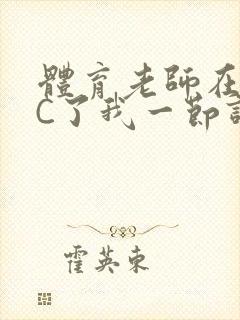 體育老師在
C了我一節
霍英東